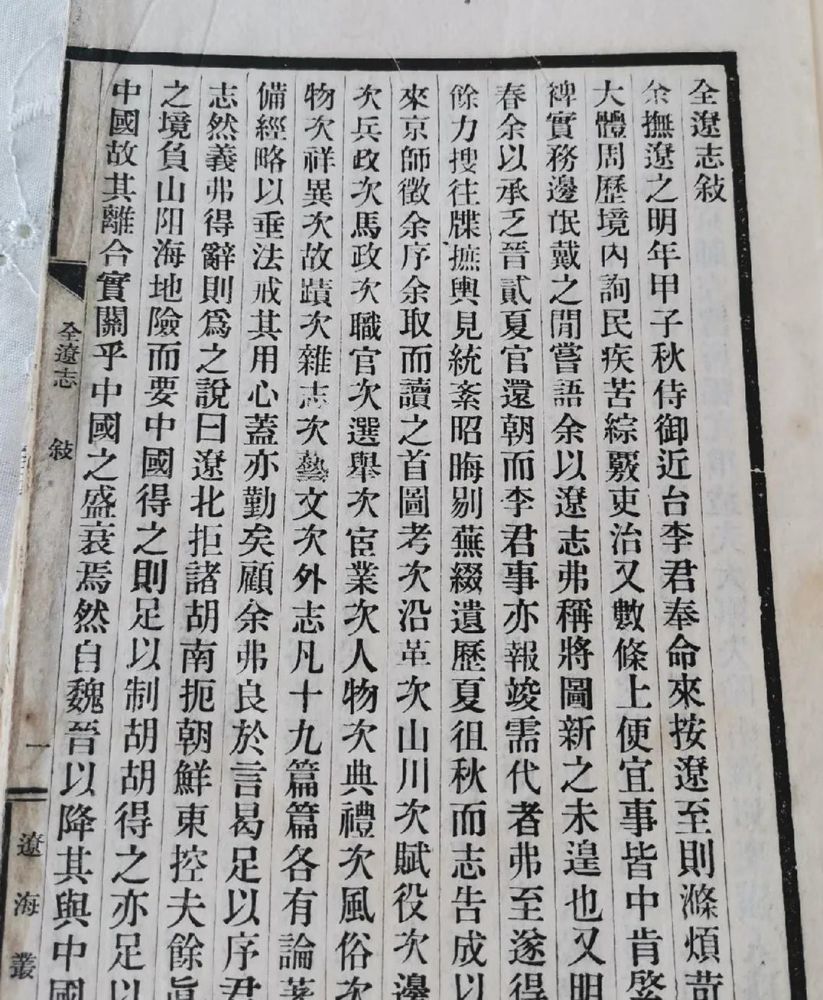 全遼志敍
余撫遼之明年甲子秋侍御近台李君奉命來按遼至則滌煩苛
大體周歷境內詢民疾苦綜覈吏治又數條上便宜事皆中肯綮
裨實務邊氓戴之閒嘗語余以遼志弗稱將圖新之未遑也又明
春余以承乏晉貳夏官還朝而李君事亦報竣需代者弗至遂得
餘力搜往牒摭輿見統紊昭晦剔蕪綴遺歷夏徂秋而志告成以
來京師徵余序余取而讀之首圖考次沿革次山川次賦役次邊
次兵政次馬政次職官次選舉次宦業次人物次典禮次風俗次
物次祥異次故蹟次雜志次藝文次外志凡十九篇篇各有論著
備經略以垂法戒其用心蓋亦勤矣顧余弗良於言曷足以序君
志然義弗得辭則爲之說曰遼北拒諸胡南扼朝鮮東控夫餘眞
之境負山阻海地險而要中國得之則足以制胡胡得之亦足以
中國故其離合實關乎中國之盛衰焉然自魏晉以降其與中國
全遼志 敍 一 遼海叢